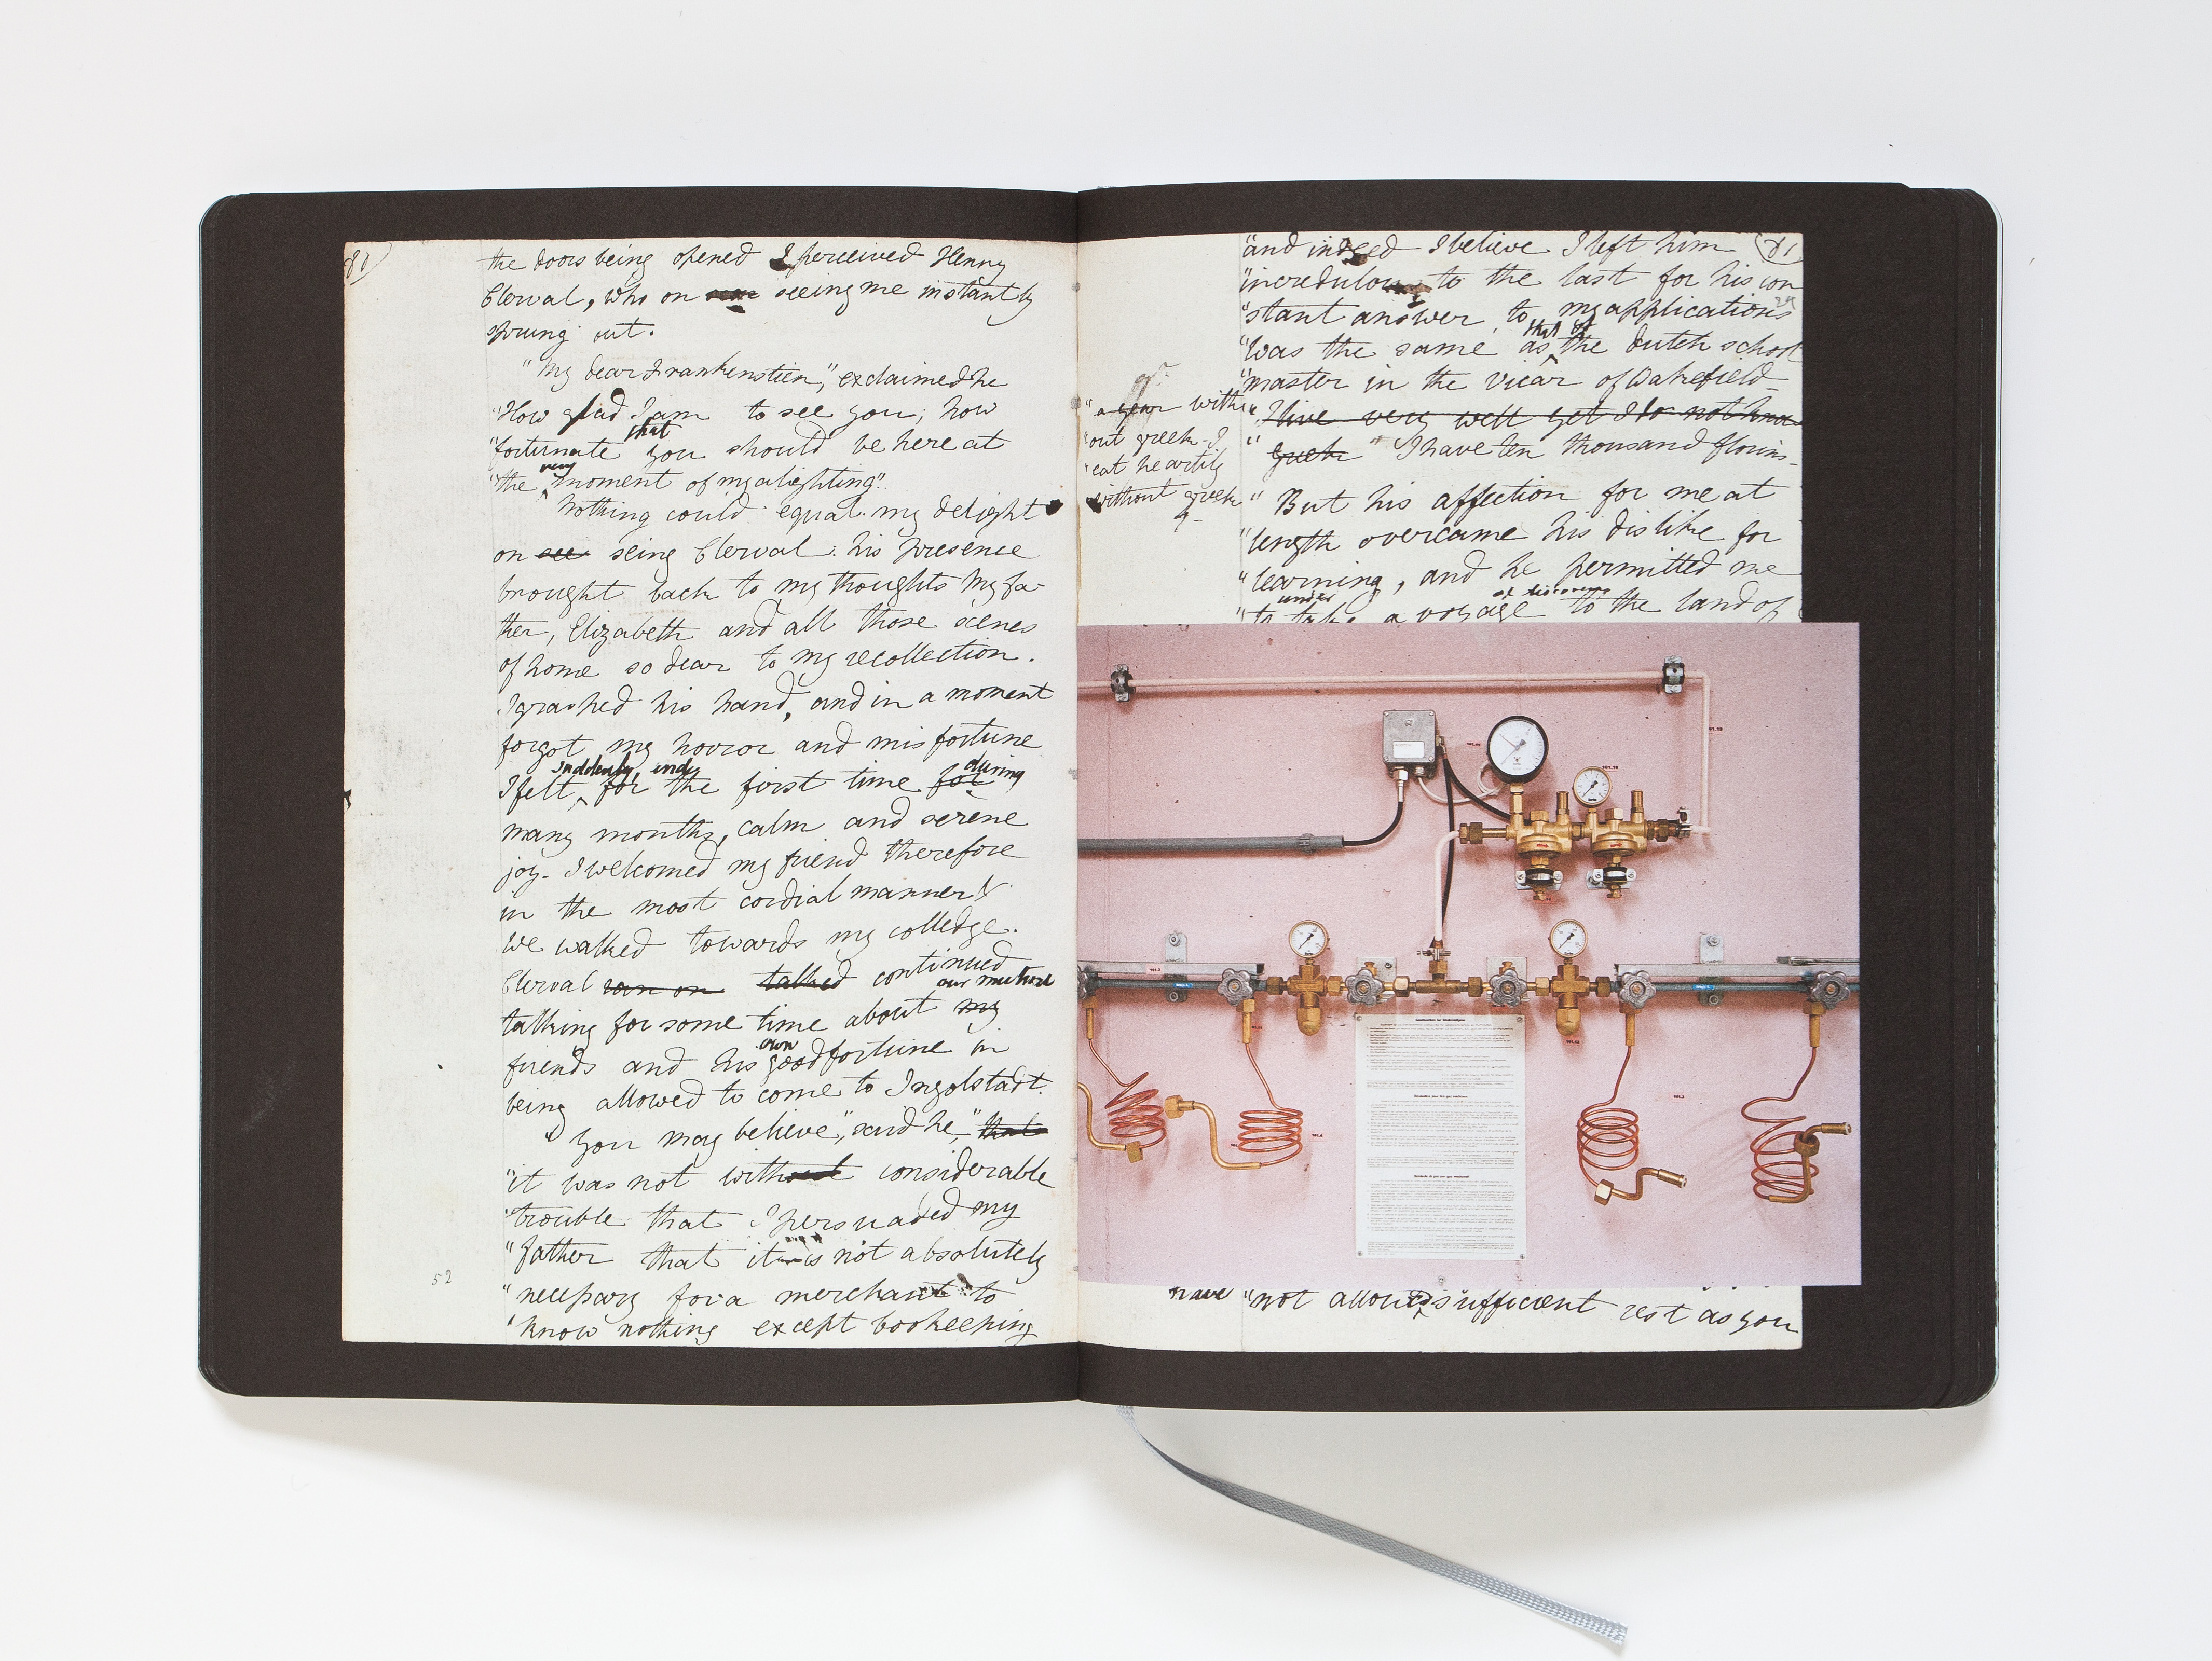 the doors being opened I perceived Henry
Clerval, who on seeing me instantly
sprung out.
"My dear Frankenstein," exclaimed he
"How glad I am to see you; how
that
"fortunate you should be here at
very
"the moment of my alighting".
Nothing could equal my delight
on see seing Clerval: his presence
brought back to my thoughts my fa-
ther, Elizabeth and all those scenes
of home so dear to my recollection.
I grasped his hand, and in a moment
forgot my horror and misfortune
suddenly, and during
I felt, for the first time for
many months, calm and serene
joy. I welcomed my friend therefore
in the most cordial manner &
we walked towards my colledge.
Clerval ran on talked continued
our mutual
talking for some time about my
own
friends and his good fortune in
being allowed to come to Ingolstadt.
"You may believe," said he, "that
"it was not without considerable
"trouble that I persuaded my
"father that it is not absolutely
52
"necessary for a merchant to
"know nothing except bookkeeping
"and indeed I believe I left him 81
"incredulous to the last for his con
"stant answer to my applications
that of
"was the same as the dutch school
"master in the vicar of Wakefield_
"I live very well yet I do not know
"greek "I have ten thousand florins_
"a year with
"out greek_I
"eat heartily
"without greek
"But his affection for me at
"length overcame his dislike for
"learning, and he permitted me
under of discovery
"to take a voyage to the land of
have "not allowed sufficient rest as you